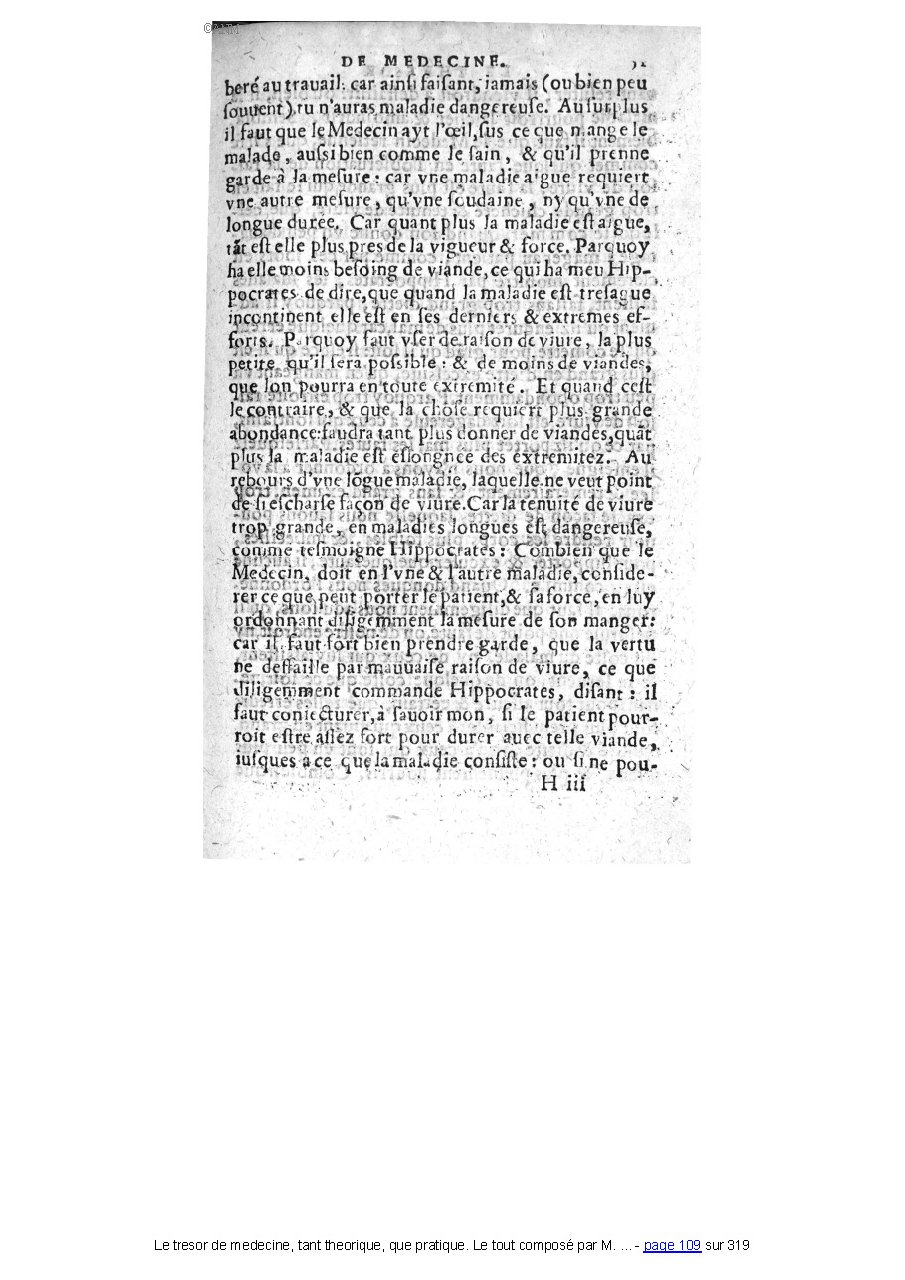 DE MEDECINE.
beré au trauail: car ainſi faiſant, iamais (ou bien peu
ſouuent), tu n'auras maladie dangereuſe. Au ſurplus
il faut que le Medecin ayt l'œil, ſus ce que mange le
malade, auſsi bien comme le ſain, & qu'il prenne
garde à la meſure: car vne maladie aigue requiert
vne autre meſure, qu'vne ſoudaine, ny qu'vne de
longue duree. Car quant plus la maladie eſt aigue,
tãt eſt elle plus pres de la vigueur & force. Parquoy
ha elle moins beſoing de viande, ce qui ha meu Hip-
pocrates de dire, que quand la maladie eſt treſague
incontinent elle eſt en ſes derniers & extremes ef-
forts. Parquoy faut vſer de raiſon de viure, la plus
petite qu'il ſera poſsible: & de moins de viandes,
que lon pourra en toute extremité. Et quand ceſt
le contraire, & que la choſe requiert plus grande
abondance: faudra tant plus donner de viandes, quãt
plus la maladie eſt eſlongnee des extremitez. Au
rebours d'vne lõgue maladie, laquelle ne veut point
de ſi eſcharſe façon de viure. Car la tenuité de viure
trop grande, en maladies longues eſt dangereuſe,
comme teſmoigne Hippocrates: Combien que le
Medecin, doit en l'vne & l'autre maladie, conſide-
rer ce que peut porter le patient, & ſa force, en luy
ordonnant diligemment la meſure de ſon manger:
car il faut fort bien prendre garde, que la vertu
ne deffaille par mauuaiſe raiſon de viure, ce que
diligemment commande Hippocrates, diſant: il
faut coniecturer, à ſauoir mon, ſi le patient pour-
roit eſtre aſſez fort pour durer auec telle viande,
iuſques a ce que la maladie conſiſte: ou ſi ne pou-
H iii
Le tresor de medecine, tant theorique, que pratique. Le tout composé par M. ... - page 109 sur 319